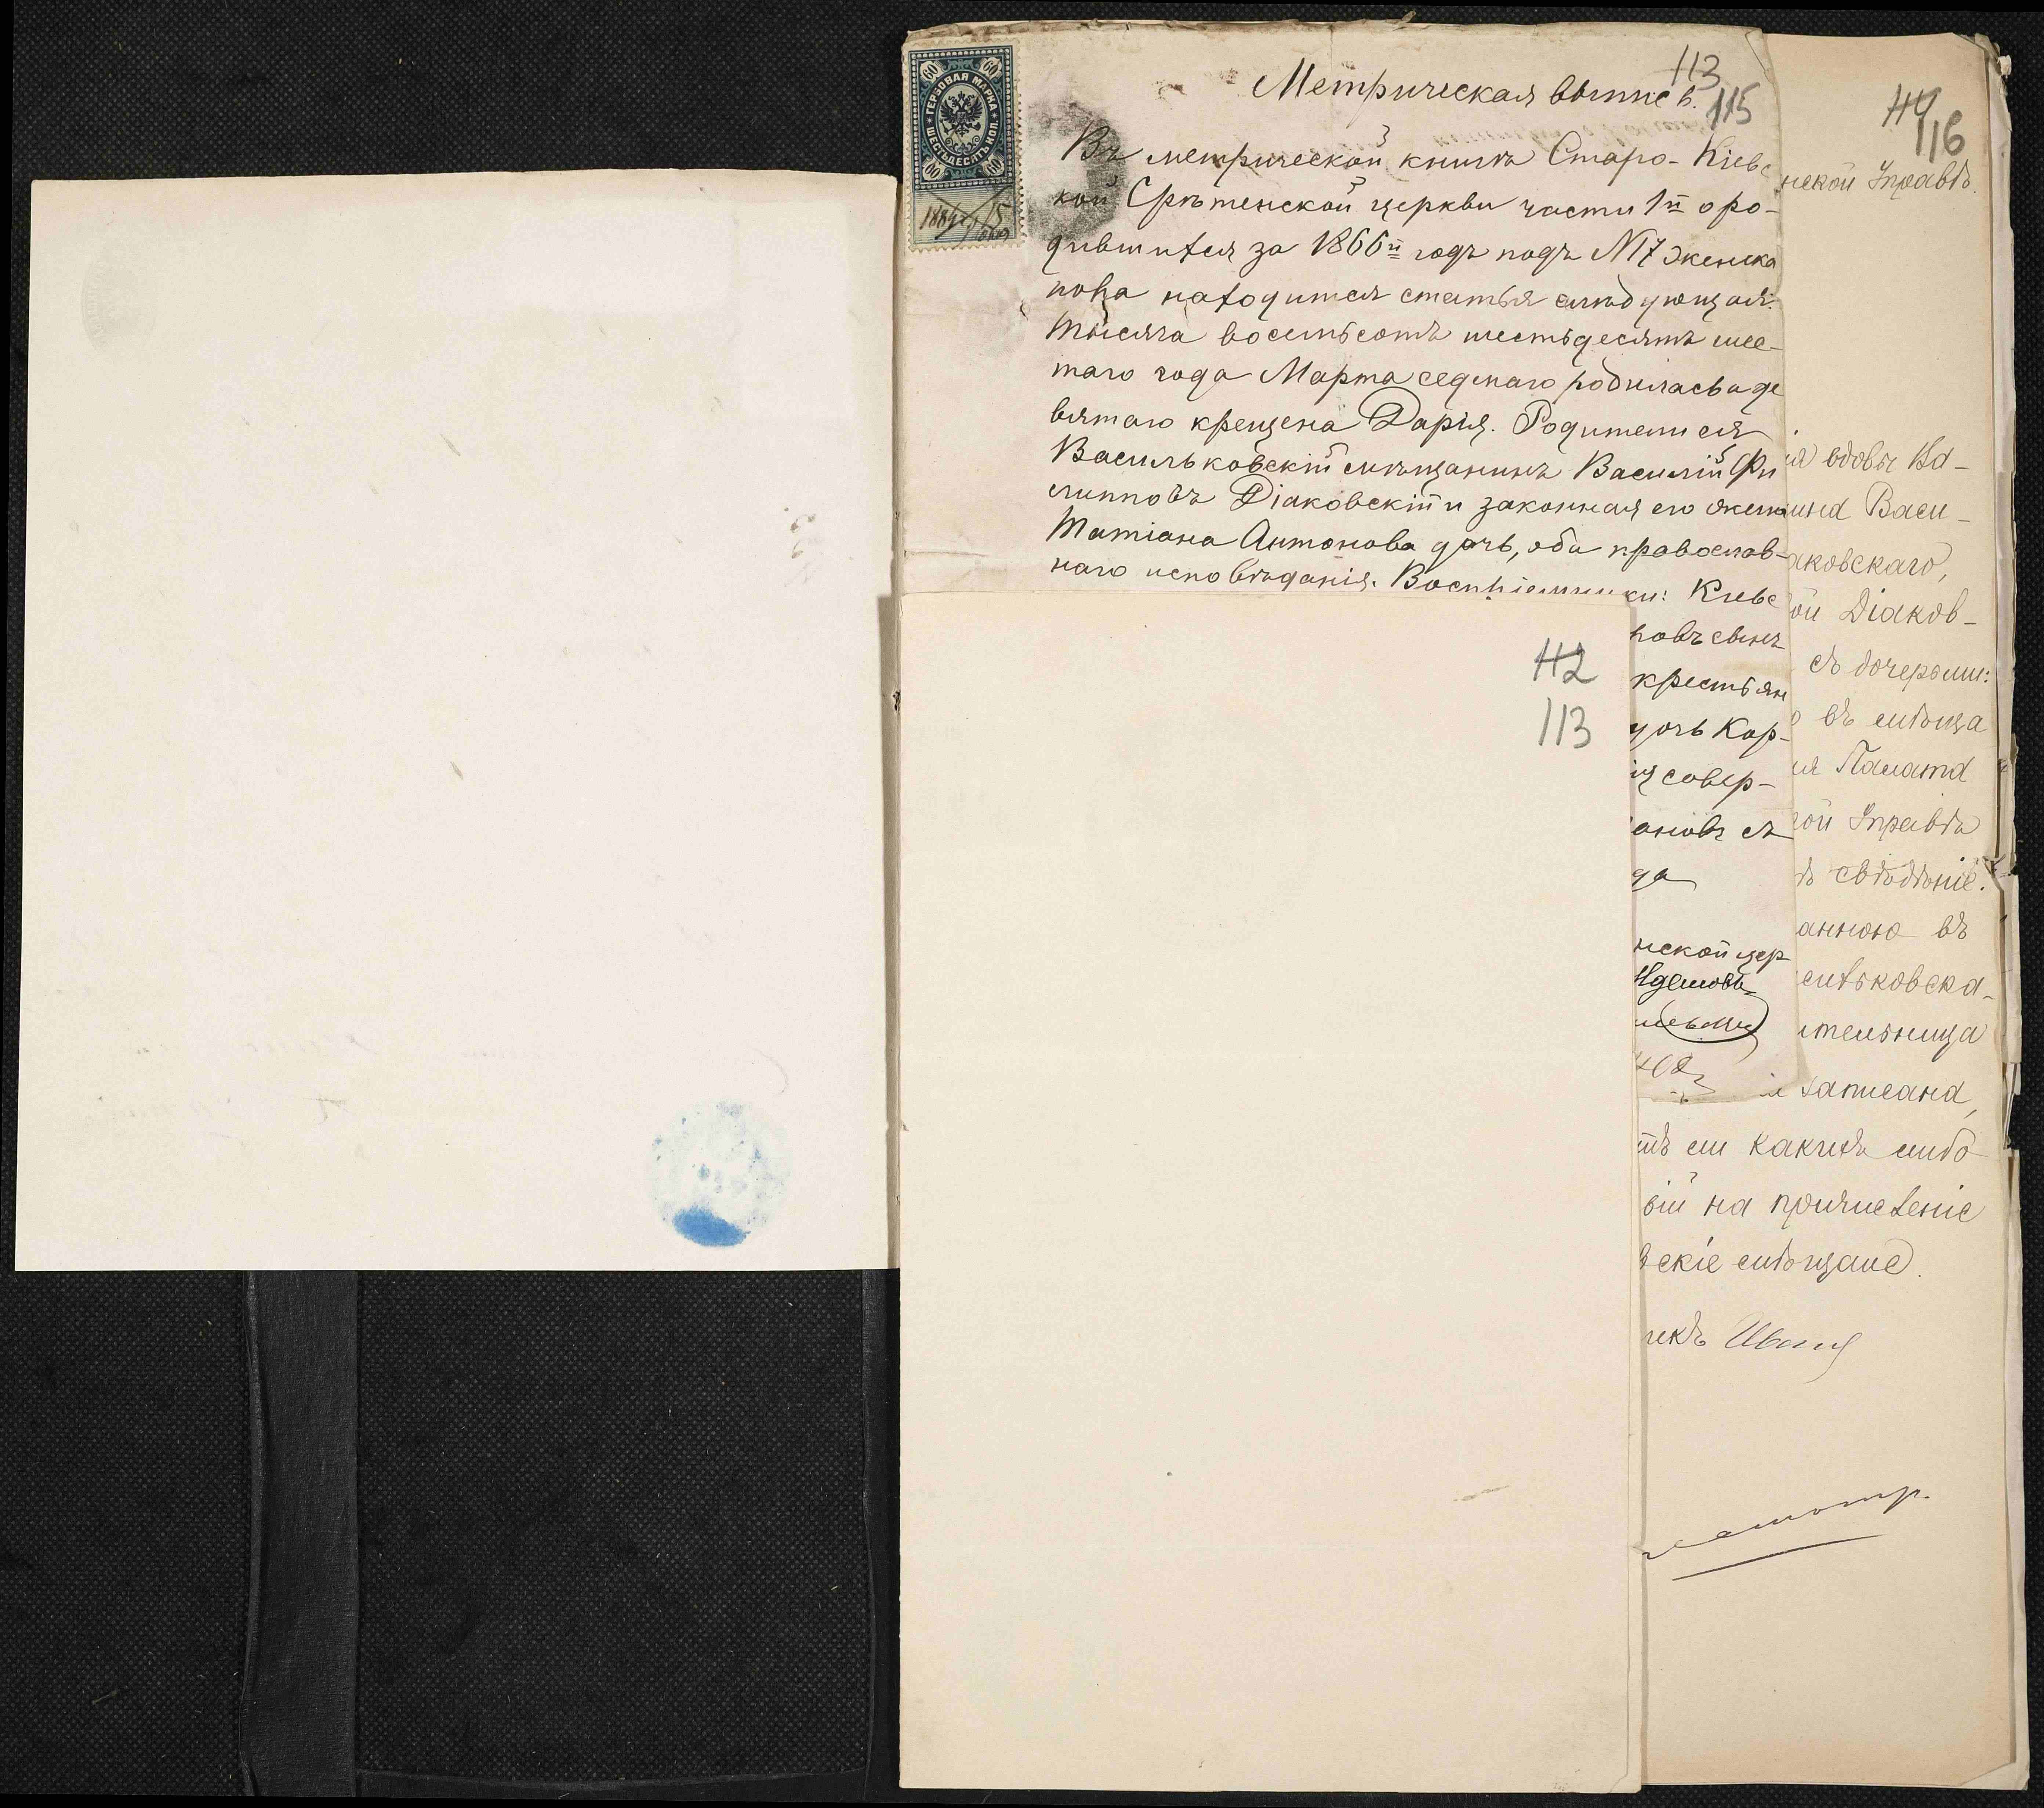 113
115
60 60
ГЕРБОВАЯ МАРКА
ШЕСТЬДЕСЯТЪ КОП.
60 60
Метрическая выпись.
Въ метрической книгѣ Старо-Кіевс
кой Срѣтенской церкви части 1й о ро-
дившихся за 1866й годъ подъ №7 женска
пола находится статья слѣдующая:
Тысяча восемьсотъ шестьдесятъ шес-
таго года Марта седмаго родилась а де
вятаго крещена Дарія. Родители ея
Васильковскій мѣщанинъ Василій Фи
липповъ Діаковскій и законная его жена
Татіана Антонова дочь, оба православ-
наго исповѣданія. Воспріемники: Кіевс
новъ сынъ
крестьян
дочь Кор-
ія совер-
ановъ съ
да
нской цер
112
113
114
116
нской Управѣ.
ія вдовы Ва-
ина Васи-
аковскаго,
ой Діаков-
съ дочерьми:
о въ мѣща
ая Палата
ой Управѣ
ъ свѣдѣніе.
анною въ
сительница
записана,
тъ ли какихъ либо
вій на причисленіе
вскіе мѣщане.